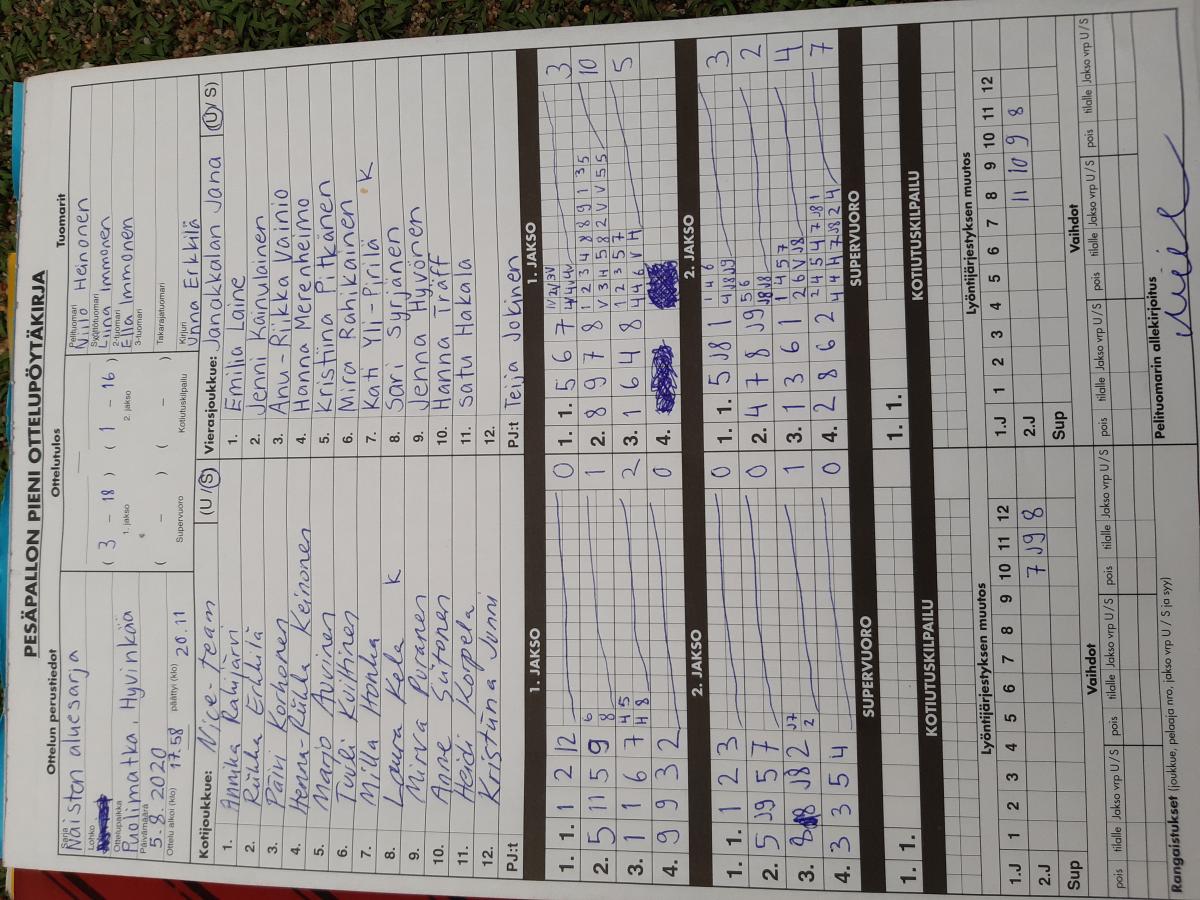 PESÄPALLON PIENI OTTELUPÖYTÄKIRJA
Ottelun perustiedot
Ottelutulos
Tuomarit
Sarja
Naisten aluesarja
Lohko
Ottelupaikka
Puolimatka, Hyvinkää
Päivämäärä
5.8.2020
Ottelu alkoi (klo) 17.58 päättyi (klo) 20.11
( 3 – 18 ) ( 1 – 16 )
1. jakso 2. jakso
( – ) ( – )
Supervuoro Kotiutuskilpailu
Pelituomari
Niilo Heinonen
Syöttötuomari
Liina Immonen
2-tuomari
Ella Immonen
3-tuomari
Takarajatuomari
Kirjuri
Inna Erkkilä
Kotijoukkue: Nice-team (U/S)
1. Annika Rahijärvi
2. Riikka Erkkilä
3. Päivi Korhonen
4. Henna-Riikka Keinonen
5. Marjo Auvinen
6. Tuuli Kuitinen
7. Milla Honka
8. Laura Kela K
9. Mirva Puranen
10. Anne Siitonen
11. Heidi Korpela
12. Kristiina Junni
PJ:t
Vierasjoukkue: Janakkalan Jana (U/S)
1. Emilia Laine
2. Jenni Kainulainen
3. Anu-Riikka Vainio
4. Hanna Merenheimo
5. Kristiina Pitkänen
6. Mira Rahikainen
7. Kati Yli-Pirilä K
8. Sari Syrjänen
9. Jenna Hyvönen
10. Hanna Träff
11. Satu Hakala
12.
PJ:t Teija Jokinen
1. JAKSO
1. 1. 1 2 12 0
2. 5 11 5 9 6 8 1
3. 1 1 6 7 4 5 H 8 2
4. 9 9 3 2 0
1. JAKSO
1. 1. 5 6 7 3
2. 8 9 7 8 1 2 3 4 8 8 9 1 3 5 10
V 3 4 5 8 2 V V 5 5
3. 1 6 4 8 1 2 3 5 7 5
4 4 6 V H
4.
2. JAKSO
1. 1. 1 2 3 0
2. 5 J9 5 7 0
3. 8 J8 2 J7 2 1
4. 3 3 5 4 0
2. JAKSO
1. 1. 5 J8 1 1 4 6 3
4 J8 J9
2. 4 7 8 J9 5 6 2
J8 J8
3. 1 3 6 1 1 4 5 7 4
2 6 V J8
4. 2 8 6 2 2 4 5 4 7 J8 1 7
4 4 H 7 J8 2 4
SUPERVUORO
1. 1.
SUPERVUORO
1. 1.
KOTIUTUSKILPAILU
KOTIUTUSKILPAILU
Lyöntijärjestyksen muutos
1 2 3 4 5 6 7 8 9 10 11 12
1.J
2.J 7 J9 8
Sup
Lyöntijärjestyksen muutos
1 2 3 4 5 6 7 8 9 10 11 12
1.J
2.J 11 10 9 8
Sup
Vaihdot
pois tilalle Jakso vrp U/S pois tilalle Jakso vrp U/S pois tilalle Jakso vrp U/S
Vaihdot
pois tilalle Jakso vrp U/S pois tilalle Jakso vrp U/S pois tilalle Jakso vrp U/S
Rangaistukset (joukkue, pelaaja nro, jakso vrp U/S ja syy)
Pelituomarin allekirjoitus